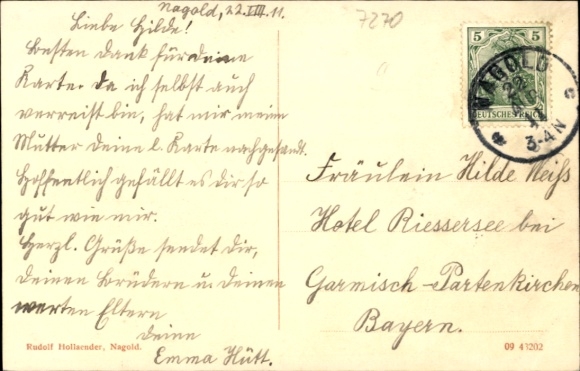 Nagold, 22.VIII.11.
7270
Liebe Hilde!
Besten Dank für deine
Karte. Da ich selbst auch
verreist bin, hat mir meine
Mutter deine l. Karte nachgesandt.
Hoffentlich gefällt es dir so
gut wie mir.
Herzl. Grüße sendet dir,
deinen Brüdern u. deinen
werten Eltern
deine
Emma Hütt.
Rudolf Hollaender, Nagold.
5 5
DEUTSCHES REICH
NAGOLD
22
11
3-4N
Fräulein Hilde Weiss
Hotel Riessersee bei
Garmisch-Partenkirchen
Bayern.
09 43202